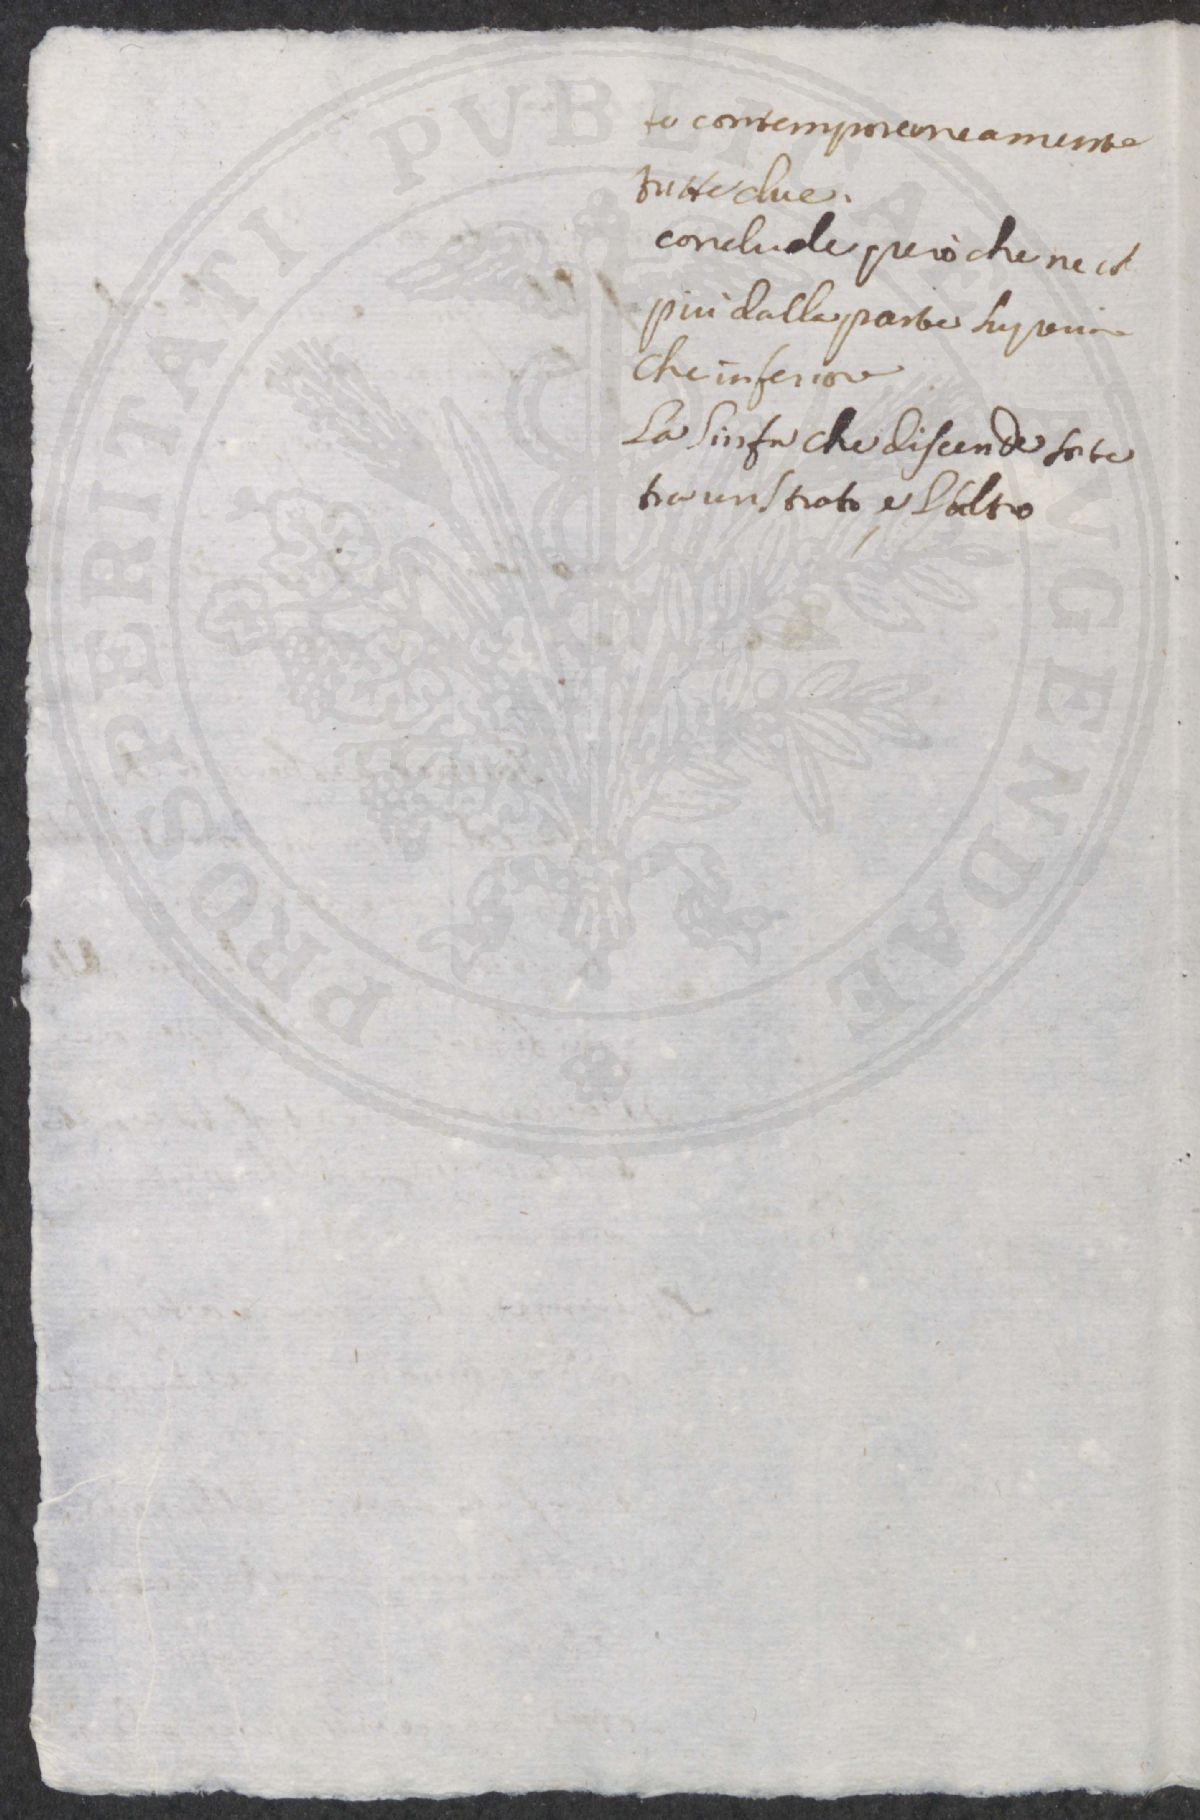 PROSPERITATI PVBLICAE AVGENDAE
to contemporaneamente
tutte due.
conclude però che ne
più dalla parte Superior
che inferiore
La Linfa che discende
tra un Strato, e l'altro